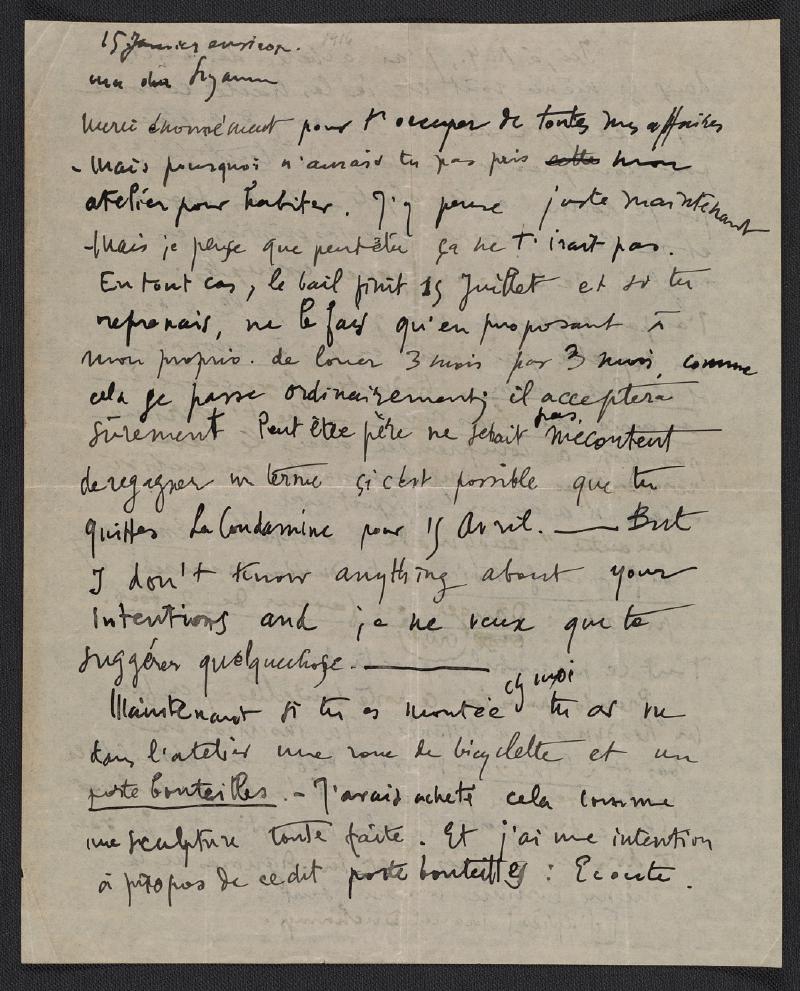 15 Janvier environ. 1916
ma chère Suzanne
Merci énormément pour t'occuper de toutes mes affaires
- Mais pourquoi n'aurais tu pas pris cette mon
atelier pour habiter. J'y pense juste maintenant
- Mais je pense que peutêtre ça ne t'irait pas.
En tout cas, le bail finit 15 Juillet et si tu
reprenais, ne le fais qu'en proposant à
mon proprio. de louer 3 mois par 3 mois, comme
cela se passe ordinairement; il acceptera
sûrement Peut être père ne serait pas mécontent
de regagner un terme si c'est possible que tu
quittes La Condamine pour 15 Avril. — But
I don't know anything about your
intentions and je ne veux que te
suggérer quelquechose. —
Maintenant si tu es montée chez moi tu as vu
dans l'atelier une roue de bicyclette et un
porte bouteilles. - J'avais acheté cela comme
une sculpture toute faite. Et j'ai une intention
à propos de ce dit porte bouteilles : Ecoute.